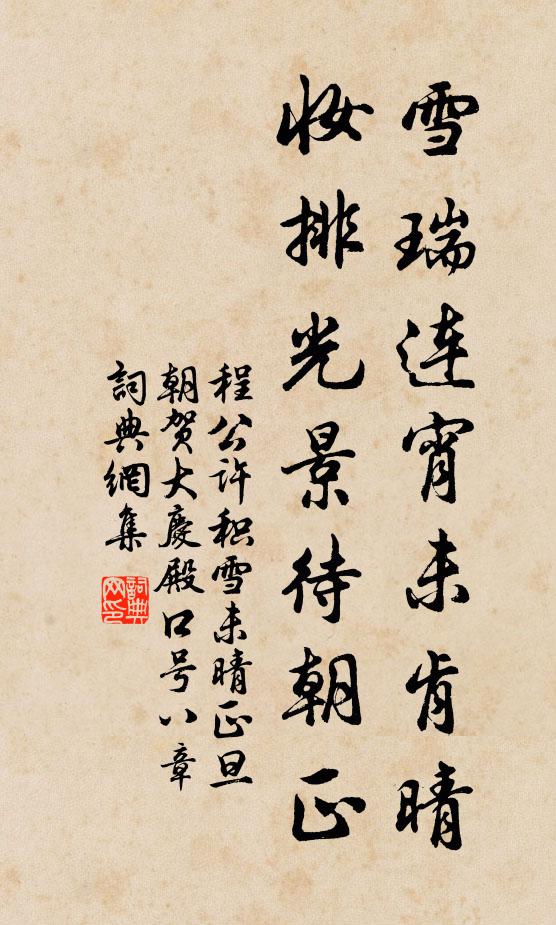 雪瑞连宵未肯晴
妆排光景待朝正
程公许积雪未晴正旦
朝贺大庆殿口号八章
詞典網集
詞典网印